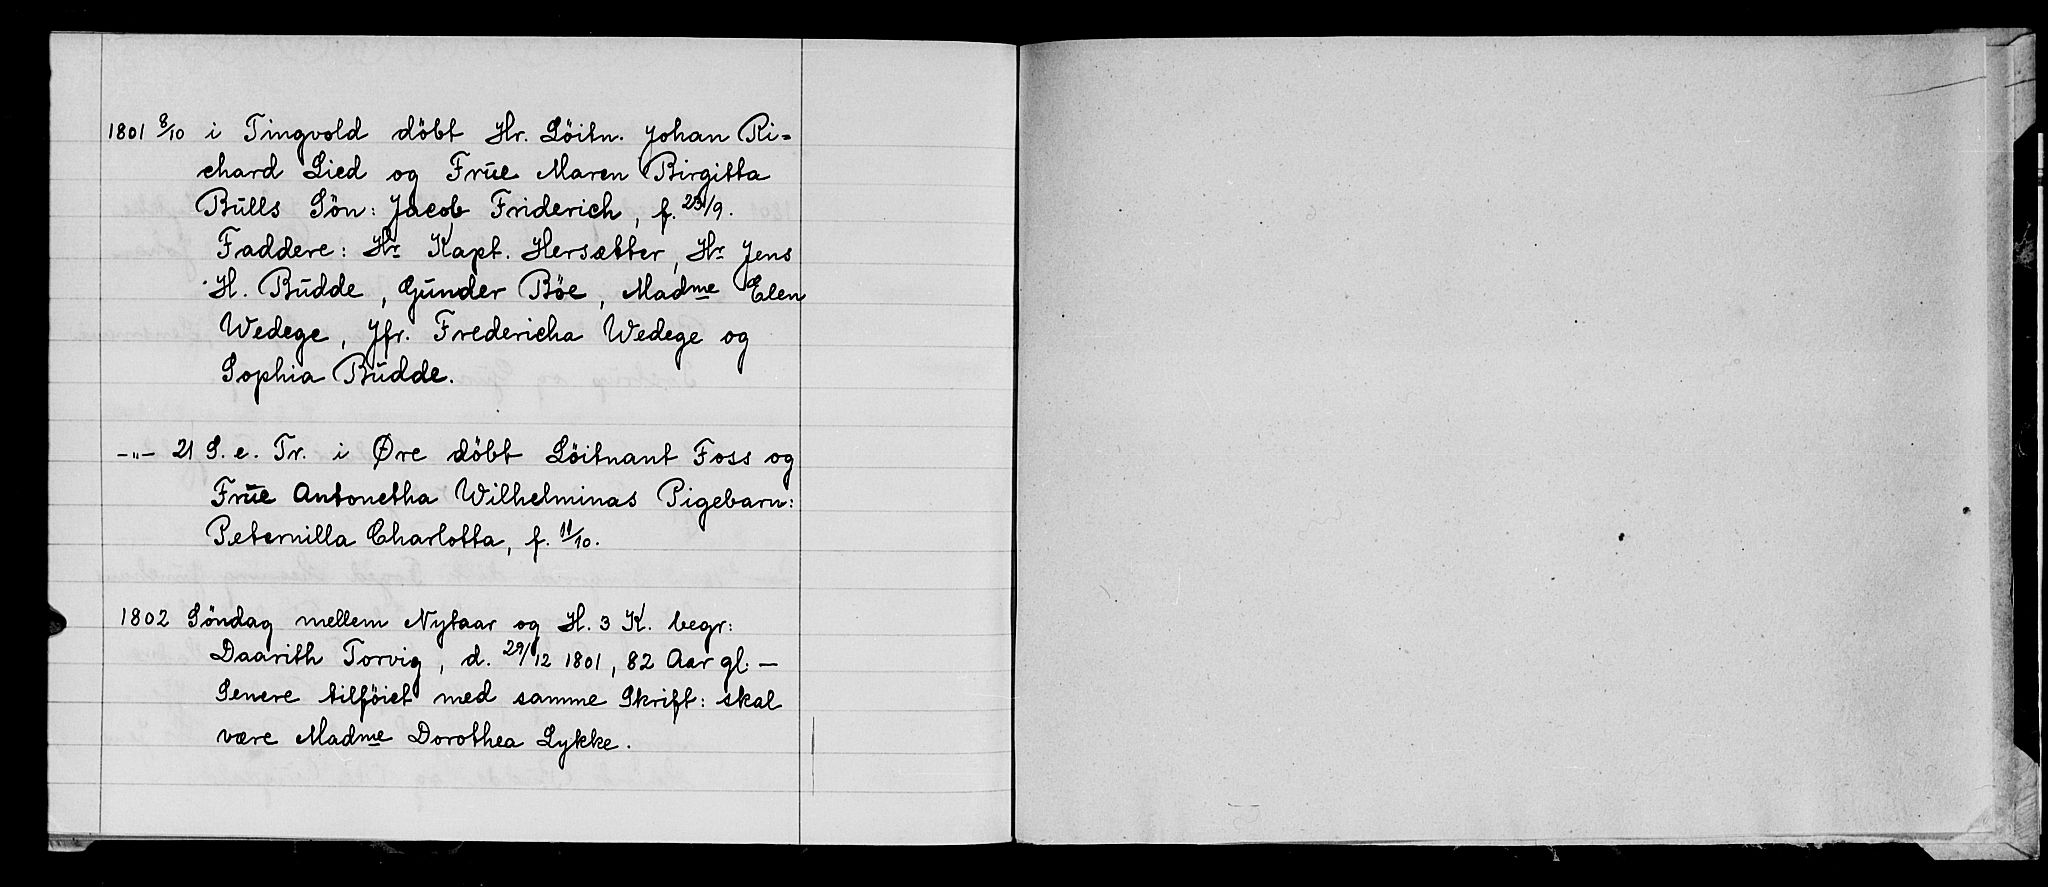 1801 8/10 i Tingvold döbt Hr. Löitn. Johan Ri=
chard Lied og Frŭe Maren Birgitta
Bŭlls Sön: Jacob Friderich, f. 23/9.
Faddere: Hr Kapt. Hersætter, Hr Jens
H. Bŭdde, Gŭnder Böe, Madme Elen
Wedege, Jfr. Fredericha Wedege og
Sophia Bŭdde.
-„- 21 S. e. Tr. i Øre döbt Löitnant Foss og
Frŭe Antonetha Wilhelminas Pigebarn:
Peternilla Charlotta, f. 11/10.
1802 Söndag mellem Nytaar og H. 3 K. begr:
Daarith Torvig, d. 29/12 1801, 82 Aar gl. —
Senere tilföiet med samme Skrift: skal
være Madme Dorothea Lykke.